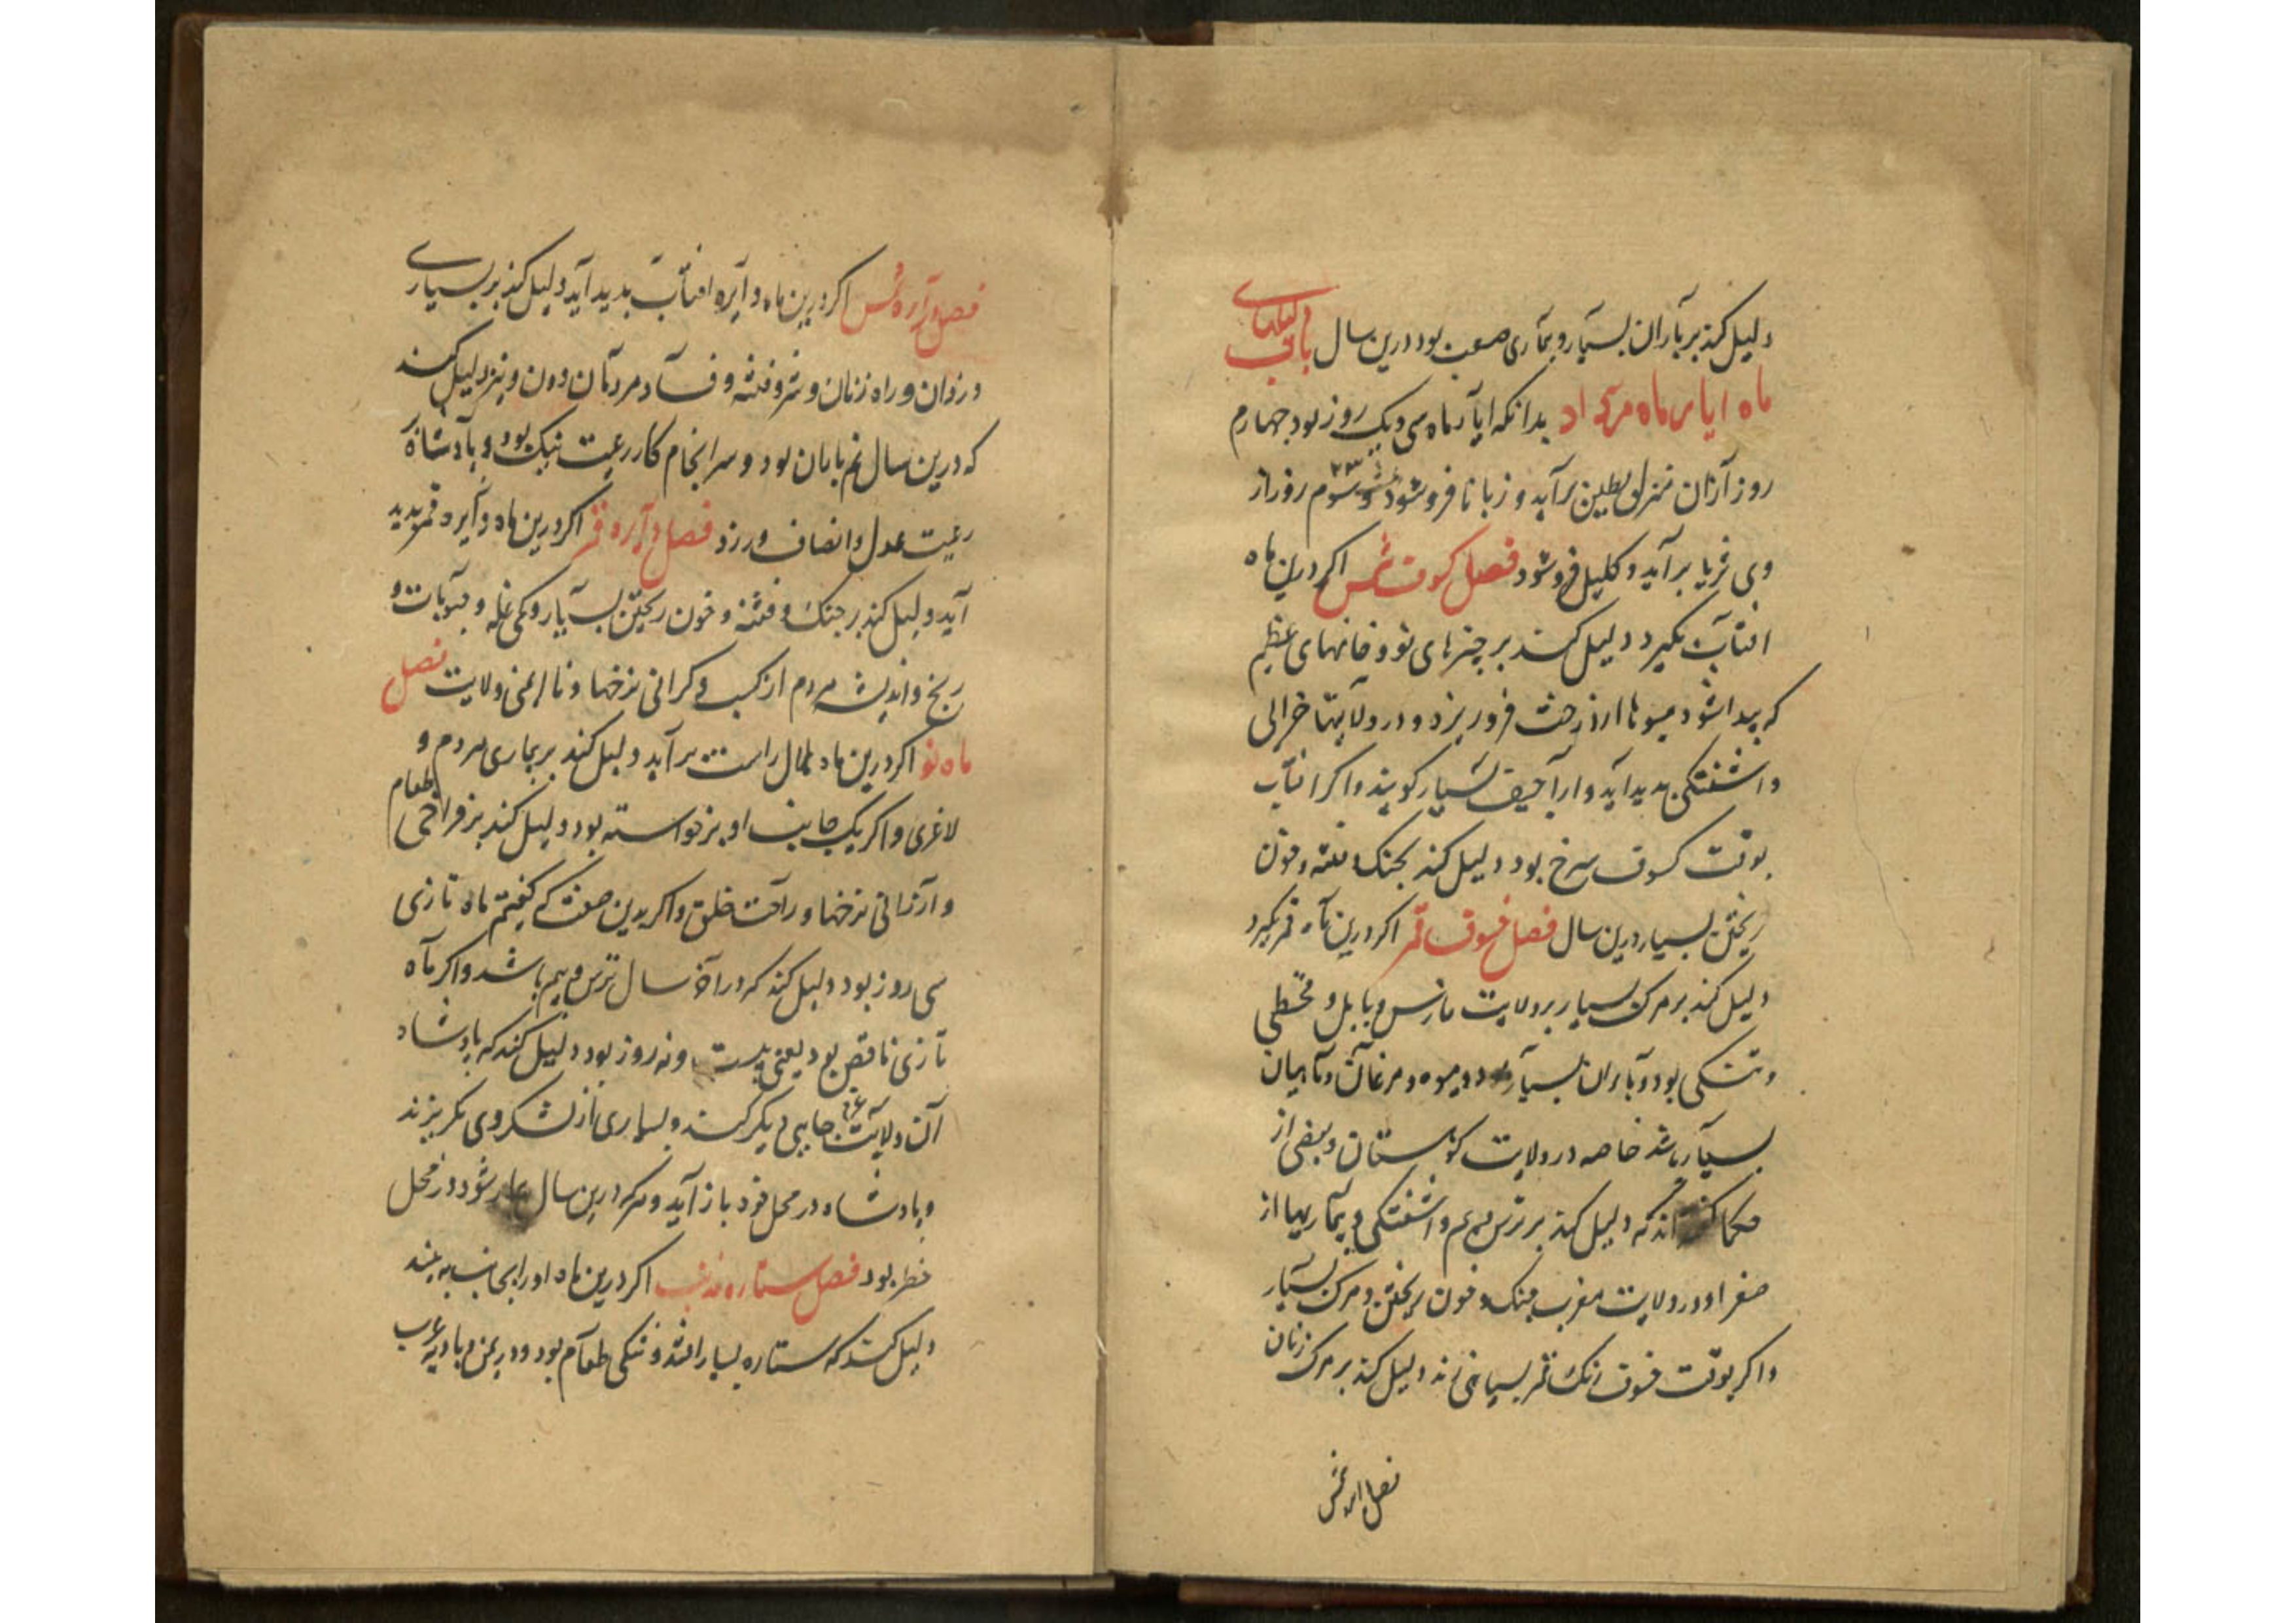 دلیل کند بر باران بسیار و بیماری صعب بود درین سال باب
ماه ایار ماه مرداد بدانکه ایار ماه سی و یک روز بود چهارم
روز از آن منزل بطین برآید و زبانا فرو شود و سوم روز از
وی ثریا برآید و کلیل فرو شود فصل کسوف شمس اکر درین ماه
افتاب بکیرد دلیل کند بر چیزهای نو و خانهای عظیم
که پیدا شود میوها از درخت فرو ریزد و در ولایتها خرابی
واشفتکی پدید آید و اراجیف بسیار کویند و اکر افتاب
بوقت کسوف سرخ بود دلیل کند بجنک و فتنه و خون
ریختن بسیار درین سال فصل خسوف قمر اکر درین ماه قمر بکیرد
دلیل کند بر مرک بسیار بر ولایت فارس و بابل و قحطی
و تنکی بود و باران بسیار و میوه و مرغان و ماهیان
بسیار باشد خاصه در ولایت کوهستان و بعضی از
حکما کفته‌اند که دلیل کند بر ترس و بیم و اشفتکی و بیماریها از
صفرا و در ولایت مغرب جنک و خون ریختن و مرک بسیار
و اکر بوقت خسوف رنک قمر بسیاهی زند دلیل کند بر مرک زنان
فصل دایره شمس اکر درین ماه دایره افتاب پدید آید دلیل کند بر بسیاری
دزدان و راه زنان و شر و فتنه و فساد مردمان دون و نیز دلیل کند
که درین سال نم باران بود و سرانجام کار رعیت نیک بود و پادشاه
رعیت عدل و انصاف ورزد فصل دایره قمر اکر درین ماه دایره قمر پدید
آید دلیل کند بر جنک و فتنه و خون ریختن بسیار و کمی غله و حبوبات و
رنج و اندیشه مردم از کسب و کرانی نرخها و ناایمنی ولایت فصل
ماه نو اکر درین ماه هلال راست برآید دلیل کند بر بیماری مردم و
لاغری و اکر یک جانب او برخواسته بود دلیل کند بر فراخی طعام
و ارزانی نرخها و راحت خلق و اکر بدین صفت که کفتیم ماه تازی
سی روز بود دلیل کند که در آخر سال ترس و بیم باشد و اکر ماه
تازی ناقص بود یعنی بیست و نه روز بود دلیل کند که پادشاه
آن ولایت عزم جایی دیکر کند و بسیاری از لشکر وی بکریزند
و پادشاه در محل خود باز آید و هرکه درین سال بیمار شود در محل
خطر بود فصل ستاره ذو ذنب اکر درین ماه او را بجانب به بینند
دلیل کند که ستاره بسیار افتد و تنکی طعام بود و در یمن و بادیه عرب